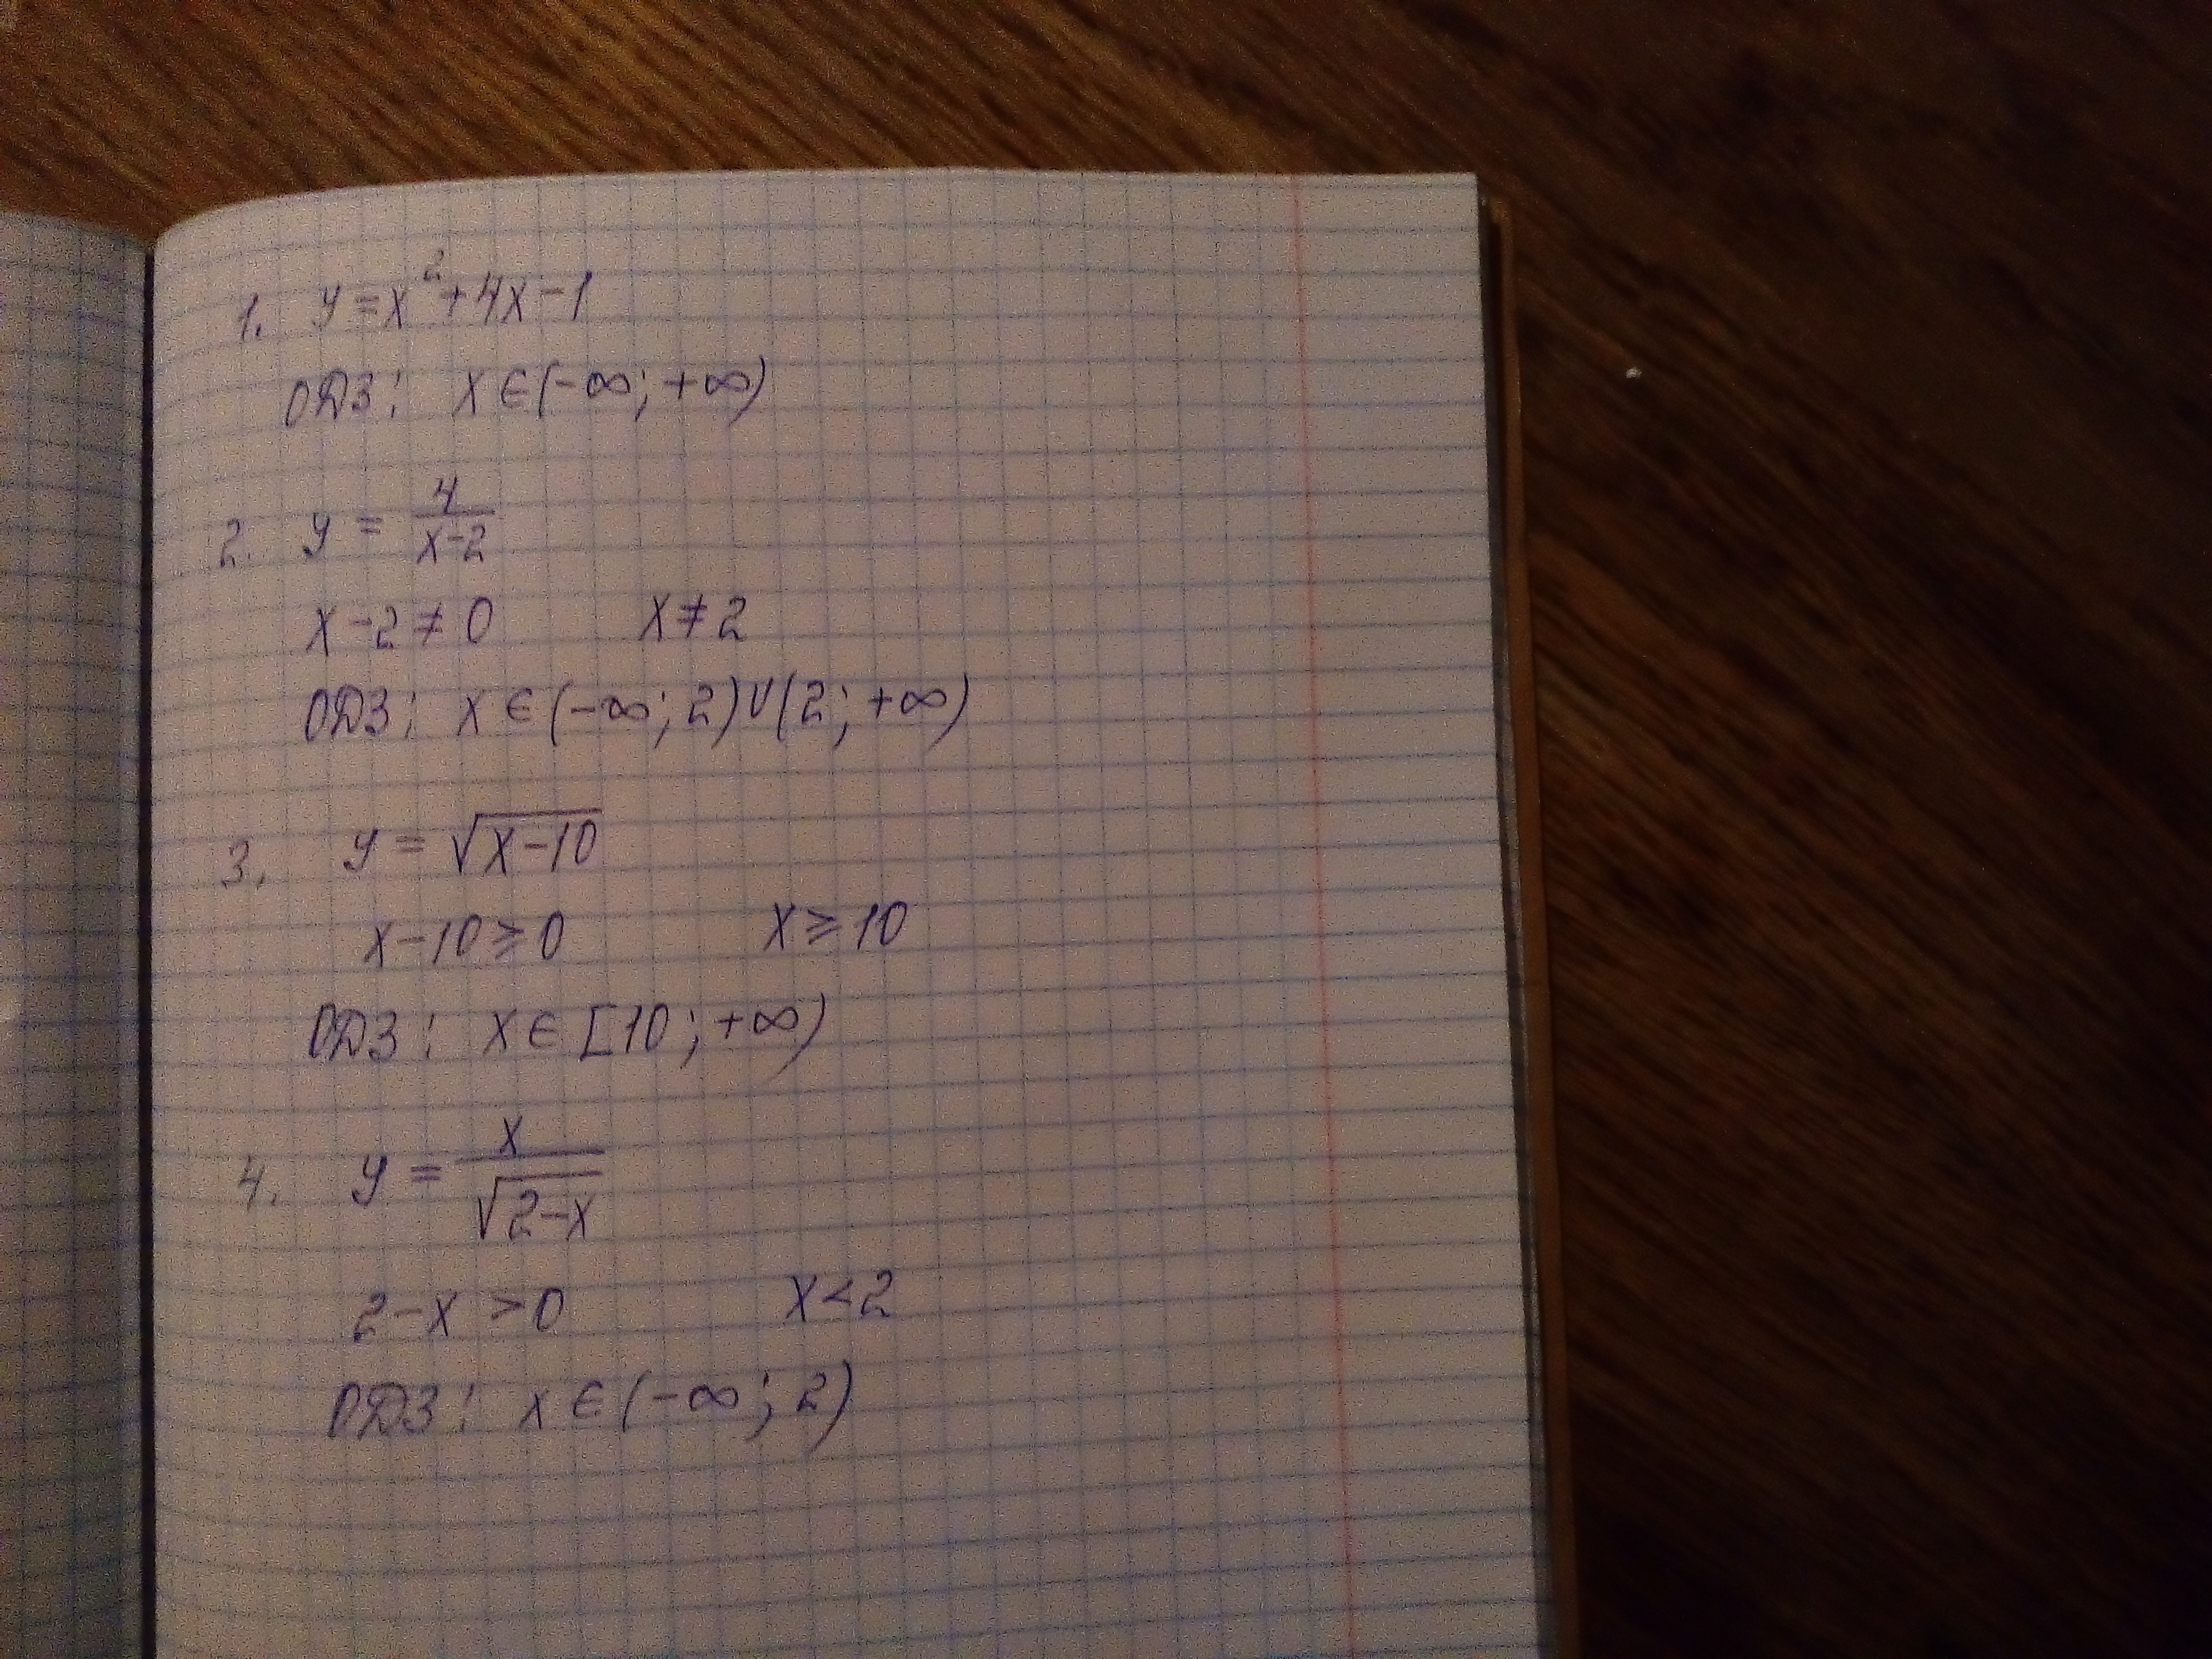 1. y = x² + 4x - 1
ОДЗ: x ∈ (-∞; +∞)
2. y = 4/(x-2)
x - 2 ≠ 0 x ≠ 2
ОДЗ: x ∈ (-∞; 2) ∪ (2; +∞)
3. y = √(x-10)
x - 10 ⩾ 0 x ⩾ 10
ОДЗ: x ∈ [10; +∞)
4. y = x/√(2-x)
2 - x > 0 x < 2
ОДЗ: x ∈ (-∞; 2)